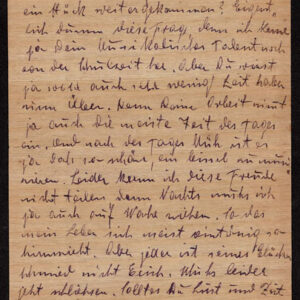 ein Stück weitergekommen? Eigent-
lich dumm diese Frage, denn ich kenne
ja Dein musikalisches Talent noch
von der Schulzeit her. Aber Du wirst
ja wohl auch sehr wenig Zeit haben
zum Üben. Denn Deine Arbeit nimmt
ja auch die meiste Zeit des Tages
ein. Und nach des Tages Müh ist es
ja doch so schön, ein bissel zu musi-
zieren. Leider kann ich diese Freude
nicht teilen, denn Nachts muß ich
ja auch auf Wache ziehen. So daß
mein Leben sich meist eintönig
Aber jeder ist seines Glückes
Schmied nicht Erich. Muß leider
jetzt schließen. Solltest Du Lust und Zeit